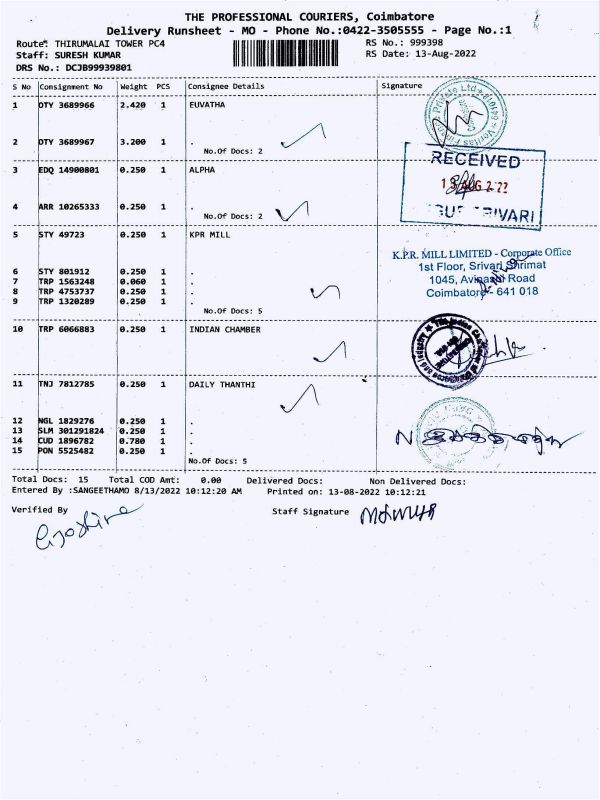 THE PROFESSIONAL COURIERS, Coimbatore
Delivery Runsheet - MO - Phone No.:0422-3505555 - Page No.:1
Route: THIRUMALAI TOWER PC4 RS No.: 999398
Staff: SURESH KUMAR RS Date: 13-Aug-2022
DRS No.: DCJB99939801
S No Consignment No Weight PCS Consignee Details Signature
1 DTY 3689966 2.420 1 EUVATHA
2 DTY 3689967 3.200 1 .
No.Of Docs: 2
RECEIVED
3 EDQ 14900801 0.250 1 ALPHA
4 ARR 10265333 0.250 1 .
No.Of Docs: 2
5 STY 49723 0.250 1 KPR MILL
K.P.R. MILL LIMITED - Corporate Office
1st Floor, Srivari Shrimat
1045, Avinashi Road
Coimbatore - 641 018
6 STY 801912 0.250 1 .
7 TRP 1563248 0.060 1 .
8 TRP 4753737 0.250 1 .
9 TRP 1320289 0.250 1 .
No.Of Docs: 5
10 TRP 6066883 0.250 1 INDIAN CHAMBER
11 TNJ 7812785 0.250 1 DAILY THANTHI
12 NGL 1829276 0.250 1 .
13 SLM 301291824 0.250 1 .
14 CUD 1896782 0.780 1 .
15 PON 5525482 0.250 1 .
No.Of Docs: 5
Total Docs: 15 Total COD Amt: 0.00 Delivered Docs: Non Delivered Docs:
Entered By :SANGEETHAMO 8/13/2022 10:12:20 AM Printed on: 13-08-2022 10:12:21
Verified By Staff Signature